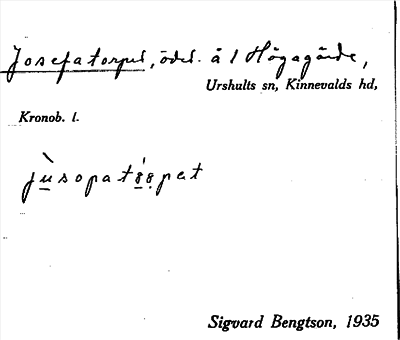 Josefatorpet, ödet. å 1 Högagärde,
Urshults sn, Kinnevalds hd,
Kronob. l.
Sigvard Bengtson, 1935